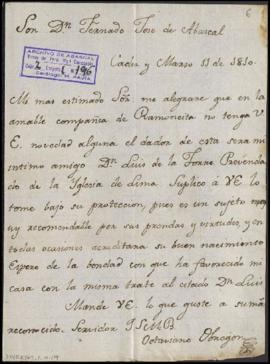 6
Sor. Dn. Fernando Jose de Abascal
Cadiz y Marzo 11 de 1810.
ARCHIVO DE ABASCAL
Virrey de Perú
2
1
196
Mi mas estimado Sor. me alegrare que en la
amable compañia de Ramoncita no tenga V
E. novedad alguna el dador de esta sera mi
intimo amigo Dn. Luis de la Torre Prevenda
do de la Iglesia de Lima Suplico á VE lo
tome bajo su proteccion, pues es un sujeto
muy recomendable por sus prendas y virtudes, y en
todas ocasiones acreditara su buen nacimiento
Espero de la bondad con que ha favorecido mi
casa con la misma trate al citado Dn. Luis
Mande VE. lo que guste a su mas
reconocido. Servidor QSMB
Octaviano Obregon